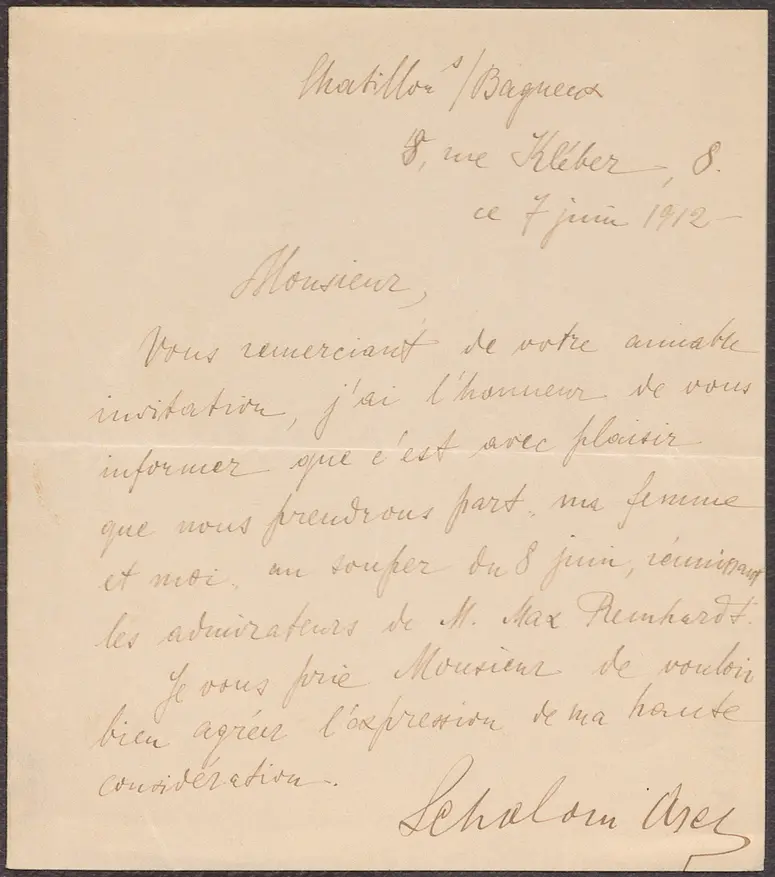 Chatillon s/Bagneux
8, rue Kléber, 8.
ce 7 juin 1912 –
Monsieur,
Vous remerciant de votre aimable
invitation, j'ai l'honneur de vous
informer que c'est avec plaisir
que nous prendrons part, ma femme
et moi, au souper du 8 juin, réunissant
les admirateurs de M. Max Reinhardt.
Je vous prie Monsieur de vouloir
bien agréer l'expression de ma haute
considération.
Schalom Asch